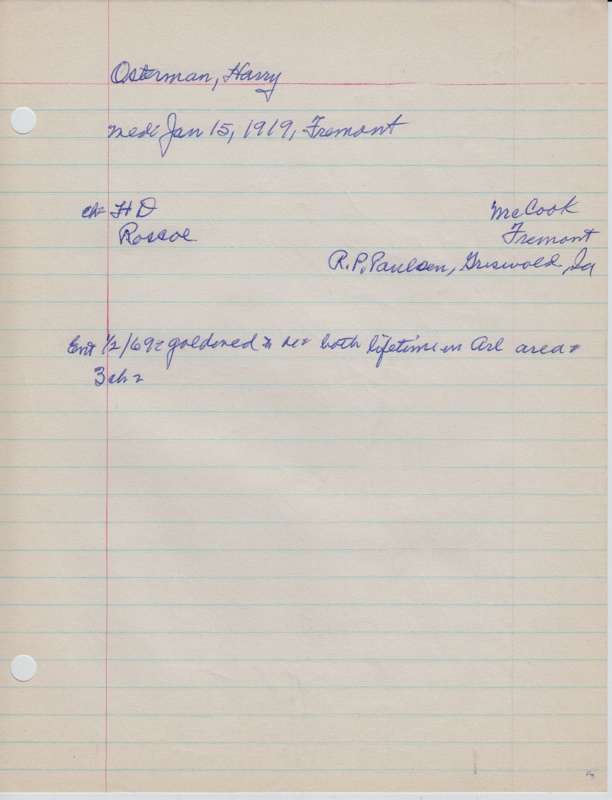 Osterman, Harry
med: Jan 15, 1919, Fremont
ch= H D McCook
Roscoe Fremont
R. P. Paulsen, Griswold, Ia
Ent 1/2/69= goldwed = both lifetime in Arl area=
3 ch=